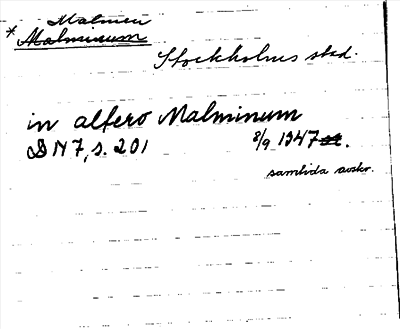 Malmen
* Malminum
Stockholms stad.
in alfero Malminum
DN 7, s. 201 8/9 1347 or.
samtida avskr.